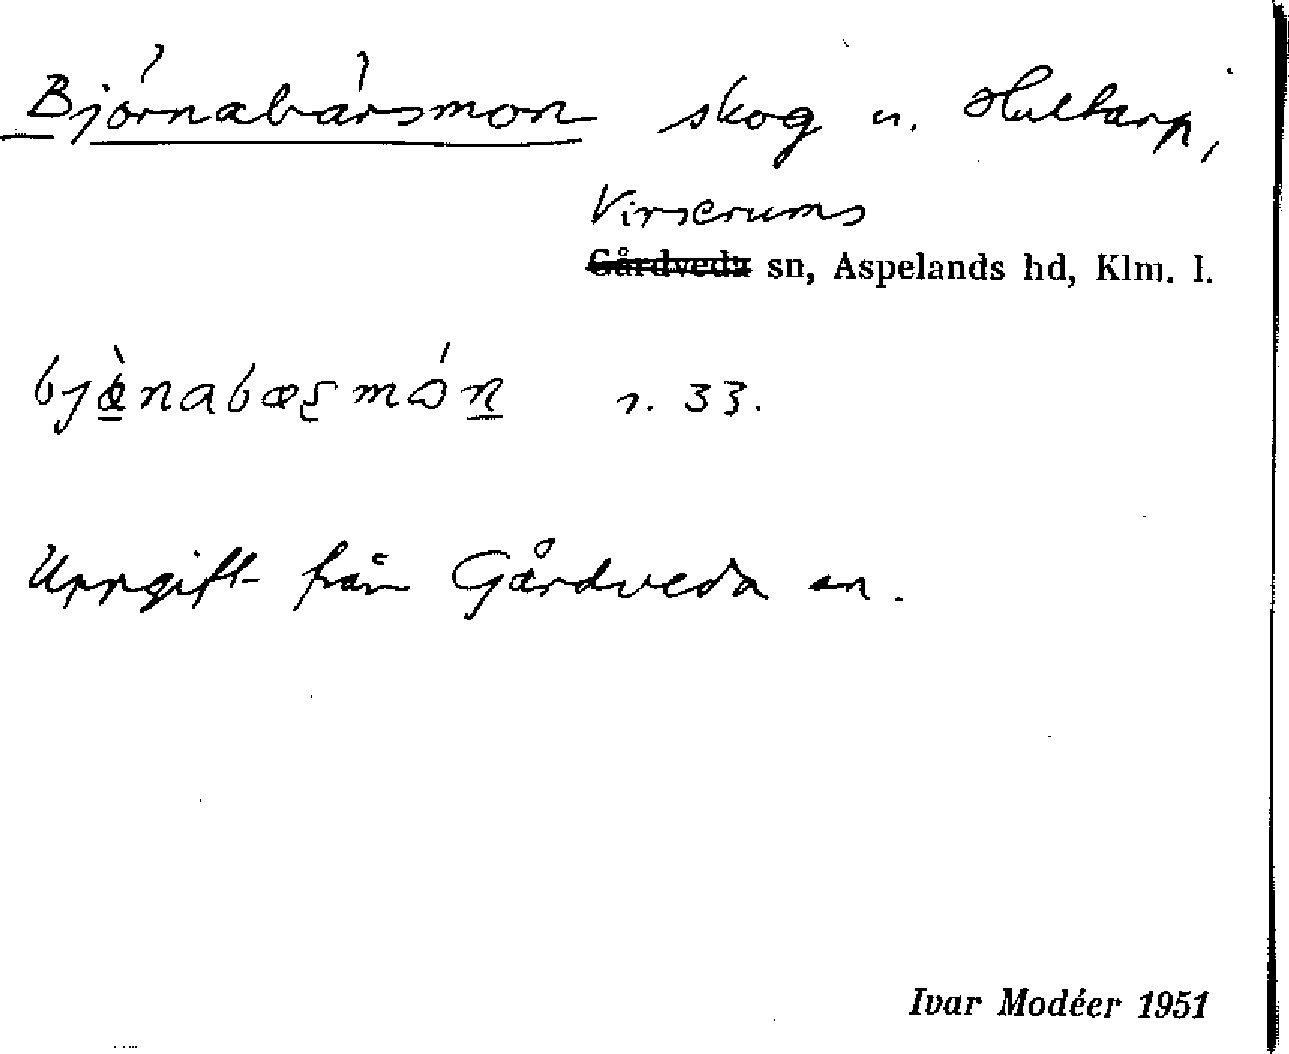 Björnabärsmon skog u. Hultarp,
Virserums
Gårdveda sn, Aspelands hd, Klm. l.
r. 33.
Uppgift från Gårdveda sn.
Ivar Modéer 1951